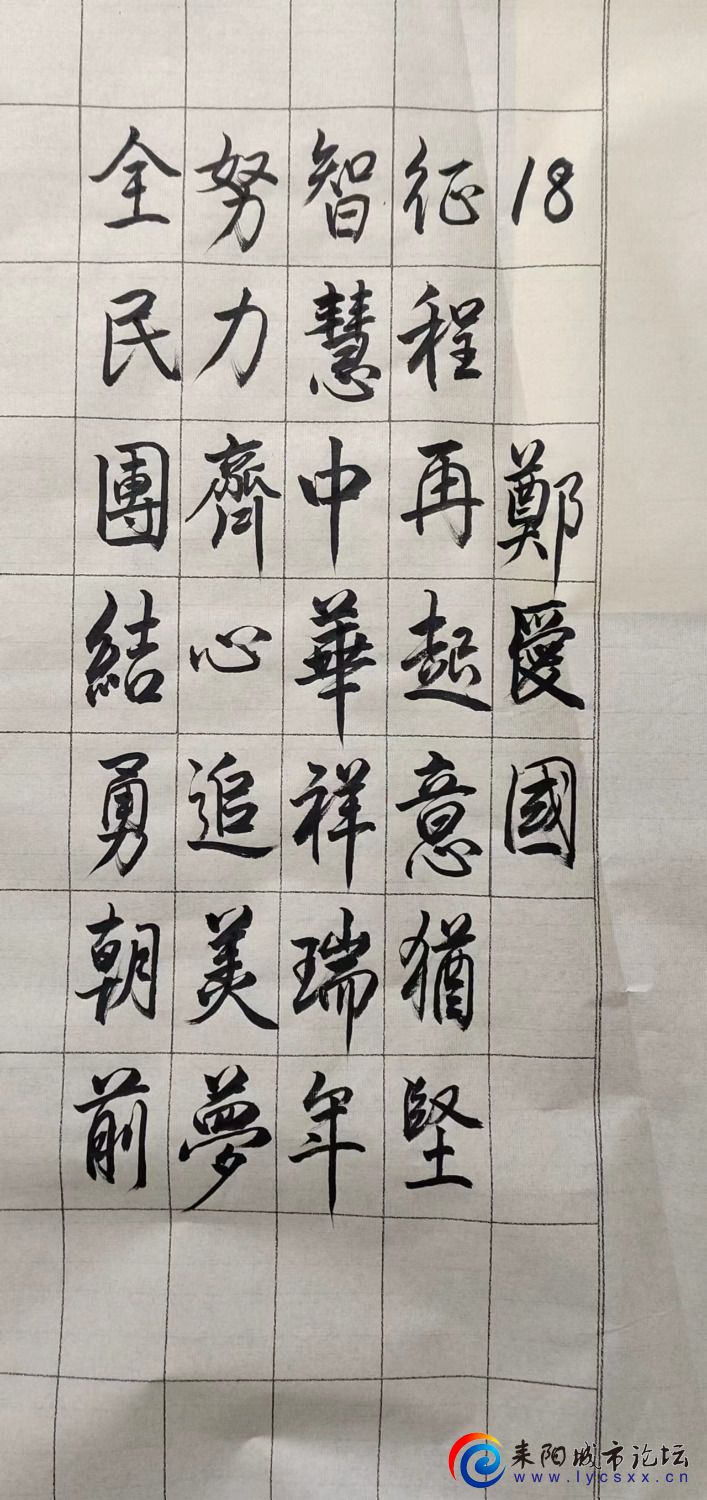 18 鄭愛國
征程再起意猶堅
智慧中華祥瑞年
努力齊心追美夢
全民團結勇朝前
耒阳城市论坛
www.lycsxx.cn